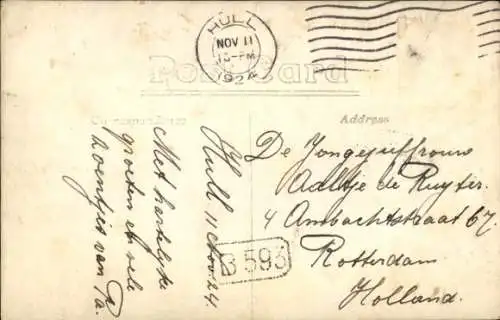 HULL
NOV 11
1924
Post Card
Correspondence
Address
Hull 11 Nov. 24.
Met hartelijke
groeten en vele
zoentjes van Pa.
De Jongejuffrouw
Adltje de Ruyter.
4 Ambachtstraat 67.
Rotterdam
Holland.
593